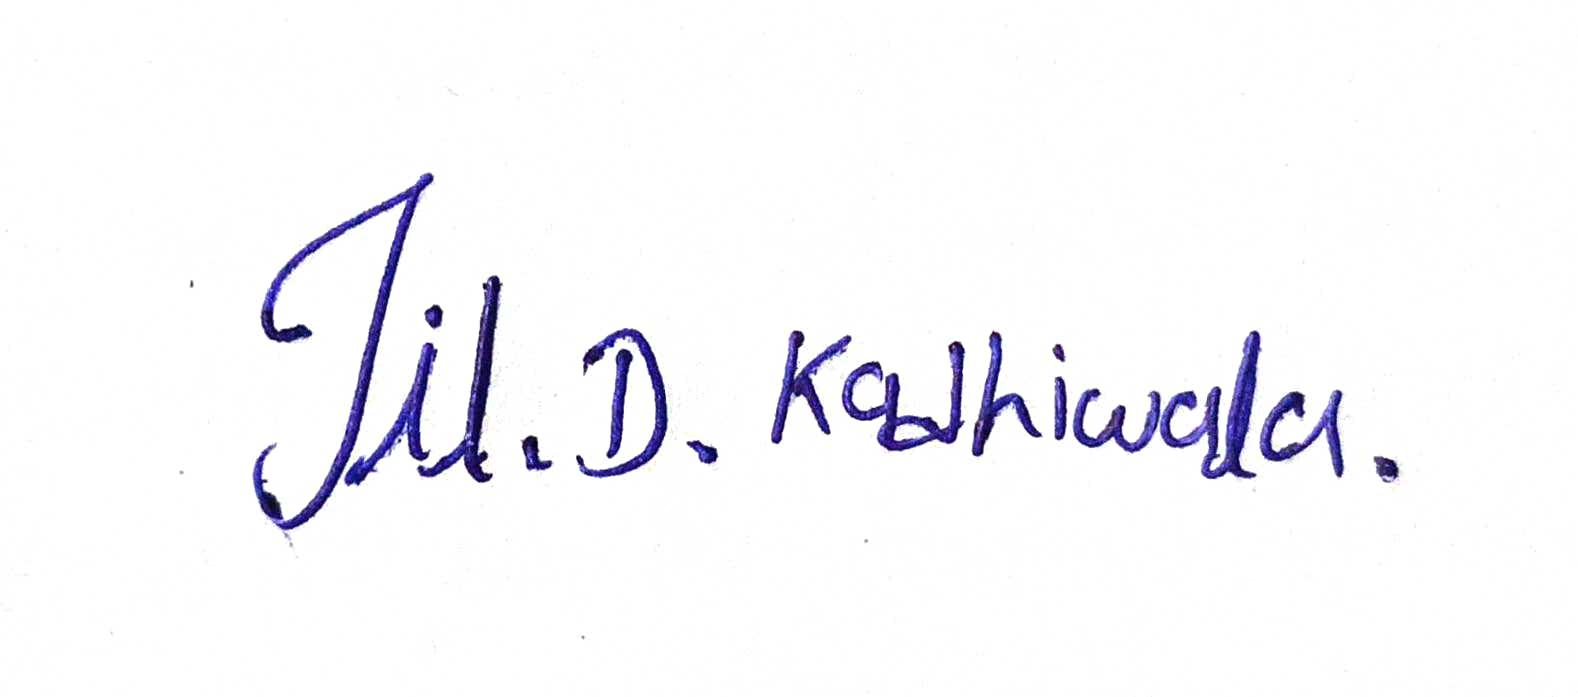 Jil. D. Kadhiwala.